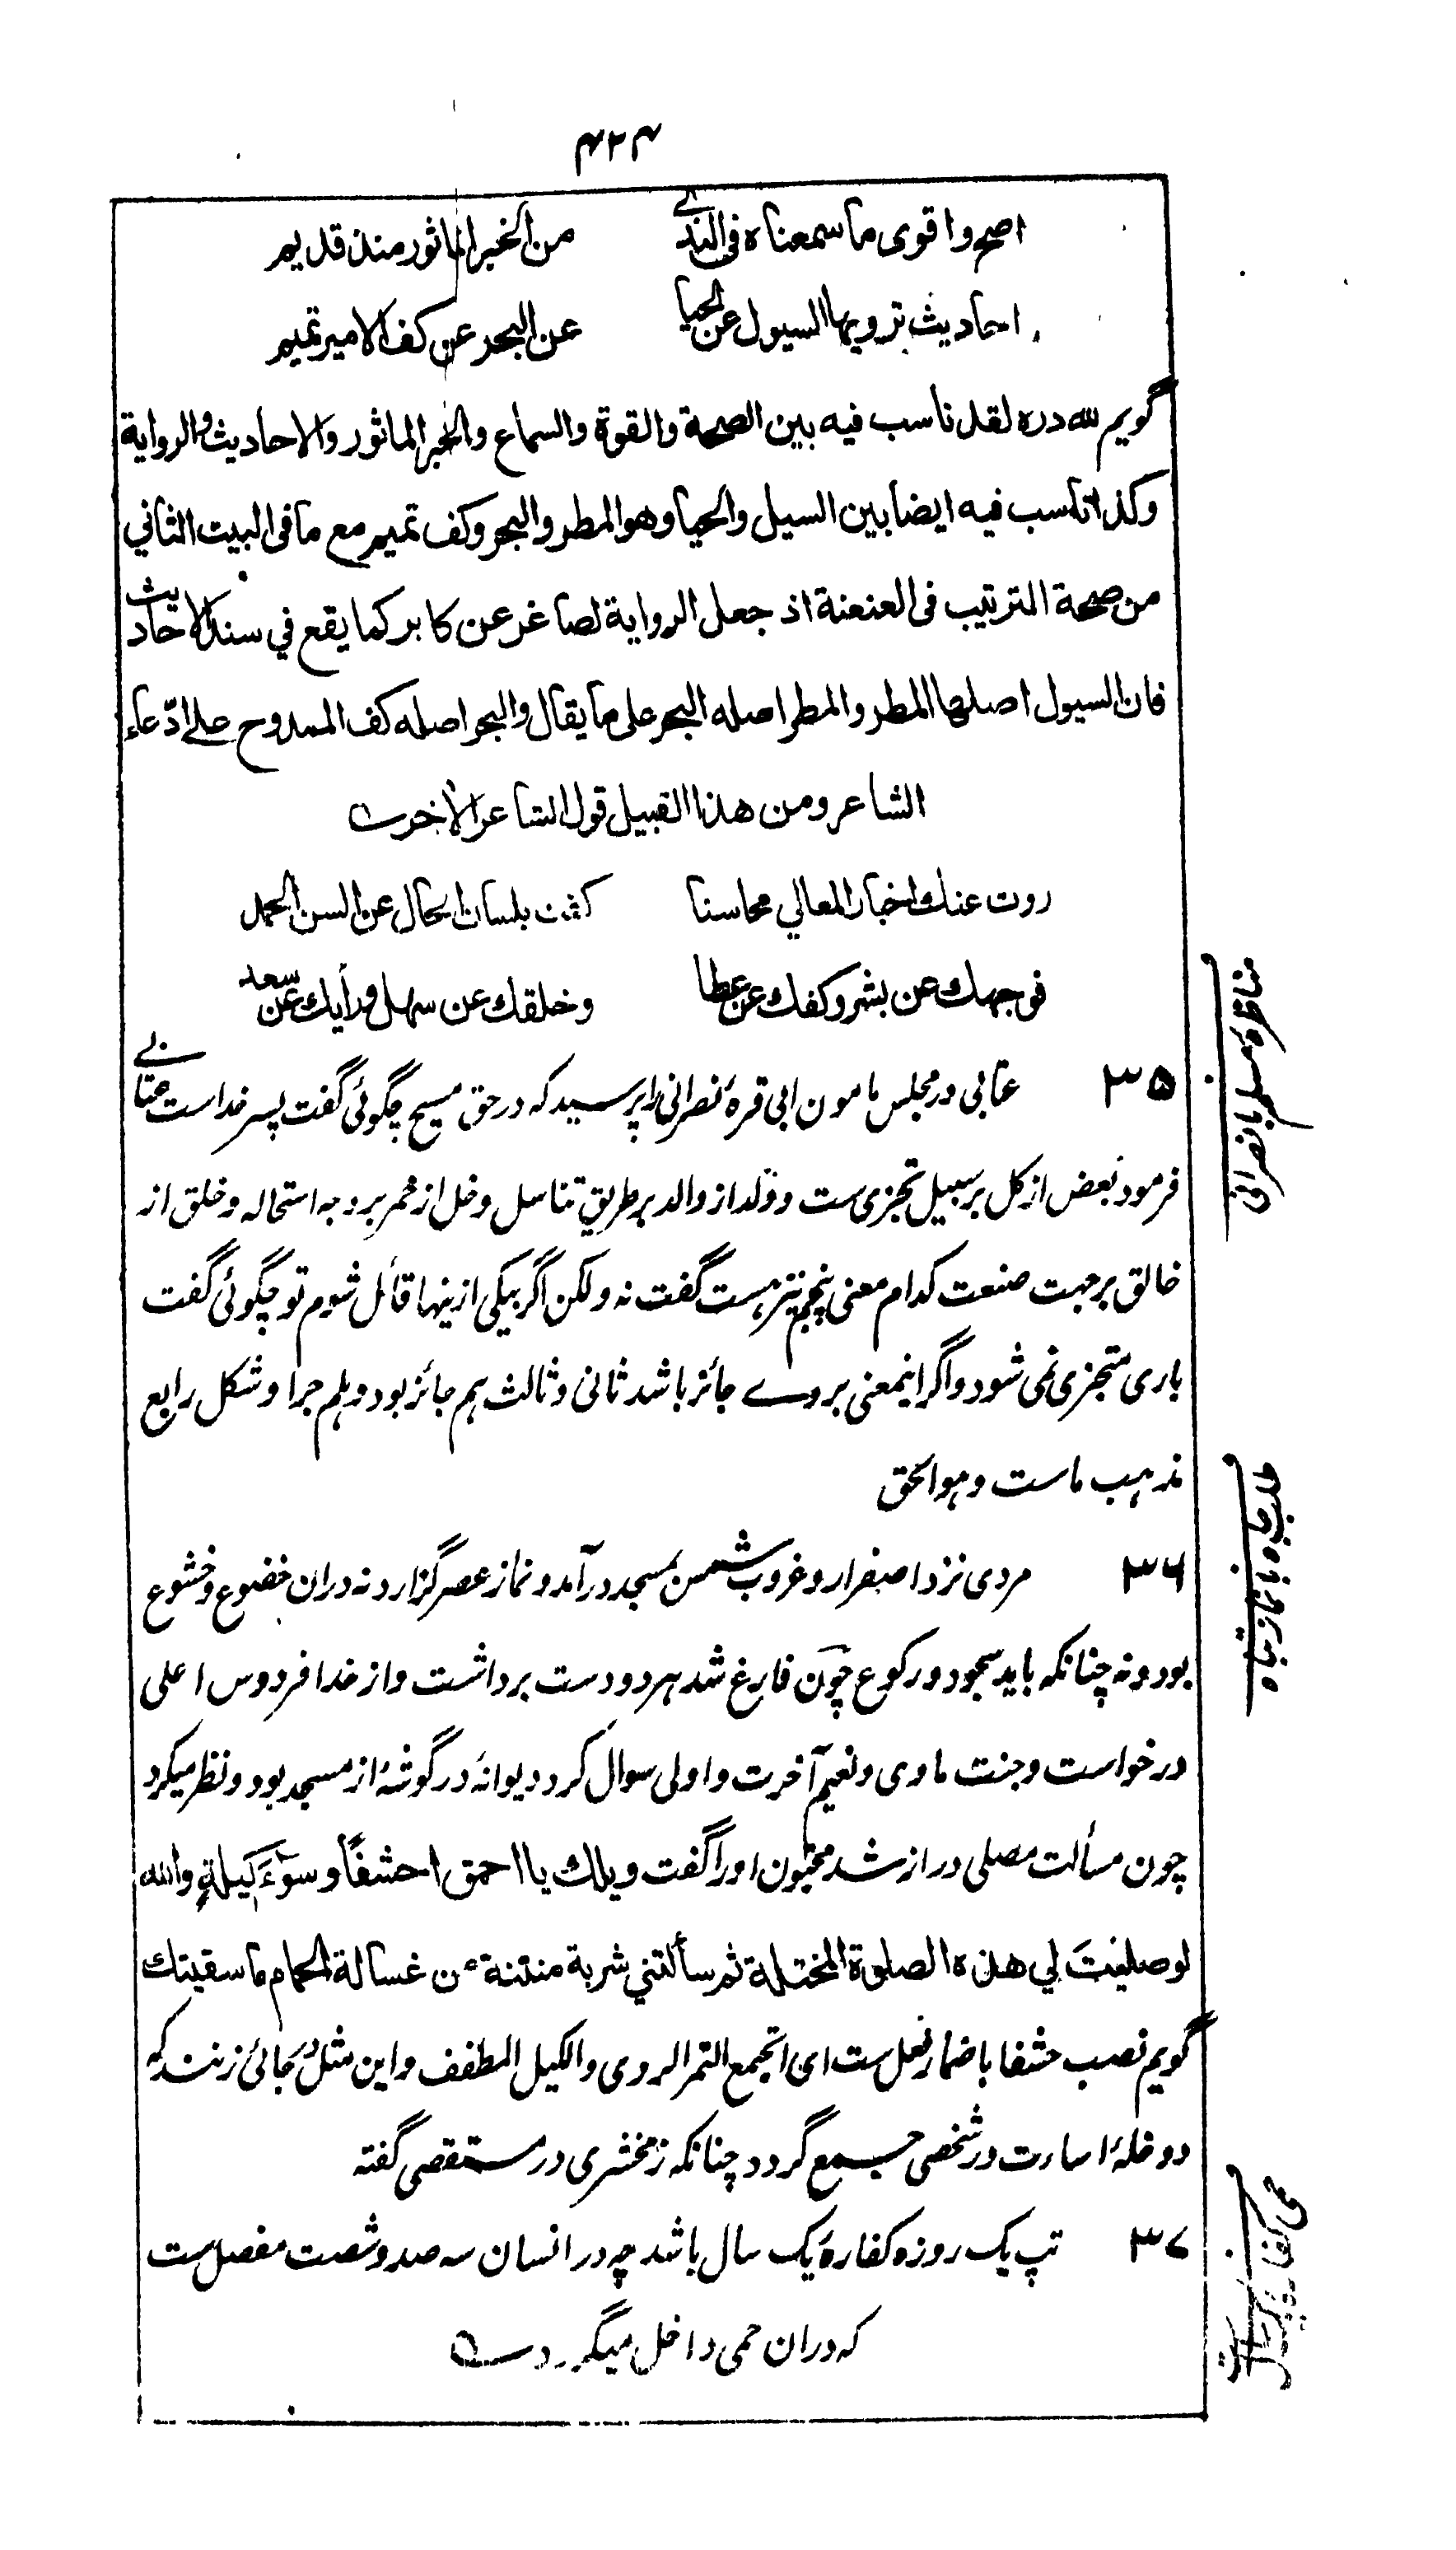 ۴۲۴
اصح واقوى ما سمعناه فى الندى من الخبر الماثور منذ قديم
احاديث ترويها السيول عن الحيا عن البحر عن كف الامير تميم
گویم لله دره لقد ناسب فيه بين الصحة والقوة والسماع والخبر الماثور والاحاديث والرواية
وكذا ناسب فيه ايضا بين السيل والحيا وهو المطر والبحر وكف تميم مع ما فى البيت الثاني
من صحة الترتيب فى العنعنة اذ جعل الرواية لصاغر عن كابر كما يقع في سند الاحاديث
فان السيول اصلها المطر والمطر اصله البحر على ما يقال والبحر اصله كف الممدوح على ادّعاء
الشاعر ومن هذا القبيل قول الشاعر الآخر
روت عنك اخبار المعالي محاسنا كفت بلسان الحال عن السن الحمد
فوجهك عن بشر وكفك عن عطا وخلقك عن سهل ورأيك عن سعد
۳۵ عتابی در مجلس مامون ابی قرهٔ نصرانی را پرسید که در حق مسیح چگوئی گفت پسر خداست عتابی
فرمود بعض از کل بر سبیل تجزی ست و ولد از والد بر طریق تناسل و خل از خمر بر وجه استحاله و خلق از
خالق بر جهت صنعت کدام معنی پنجم نیز هست گفت نه ولکن اگر بیکی ازینها قائل شوم تو چگوئی گفت
باری متجزی نمی شود و اگر اینمعنی بروے جائز باشد ثانی و ثالث هم جائز بود و هلم جرا و شکل رابع
مذهب ماست وهوالحق
۳۶ مردی نزد اصفرار و غروب شمس بمسجد درآمد و نماز عصر گزارد نه دران خضوع و خشوع
بود و نه چنانکه باید سجود و رکوع چون فارغ شد هر دو دست برداشت و از خدا فردوس اعلی
درخواست و جنت ماوی و نعیم آخرت و اولی سوال کرد دیوانهٔ در گوشهٔ از مسجد بود و نظر میکرد
چون مسألت مصلی دراز شد مجنون او را گفت ويلك يا احمق احشفًا وسوءَ كيلةٍ والله
لو صليتَ لي هذه الصلوة المختلة ثم سألتني شربة منتنة من غسالة الحمام ما سقيتك
گویم نصب حشفا باضمار فعل ست ای اتجمع التمر الردی والکیل المطفف و این مثل در جائی زنند که
دو خلهٔ اسارت در شخصی جمع گردد چنانکه زمخشری در مستقصی گفته
۳۷ تپ یک روزه کفارهٔ یک سال باشد چه در انسان سه صد و شصت مفصل ست
که دران حمی داخل میگردد